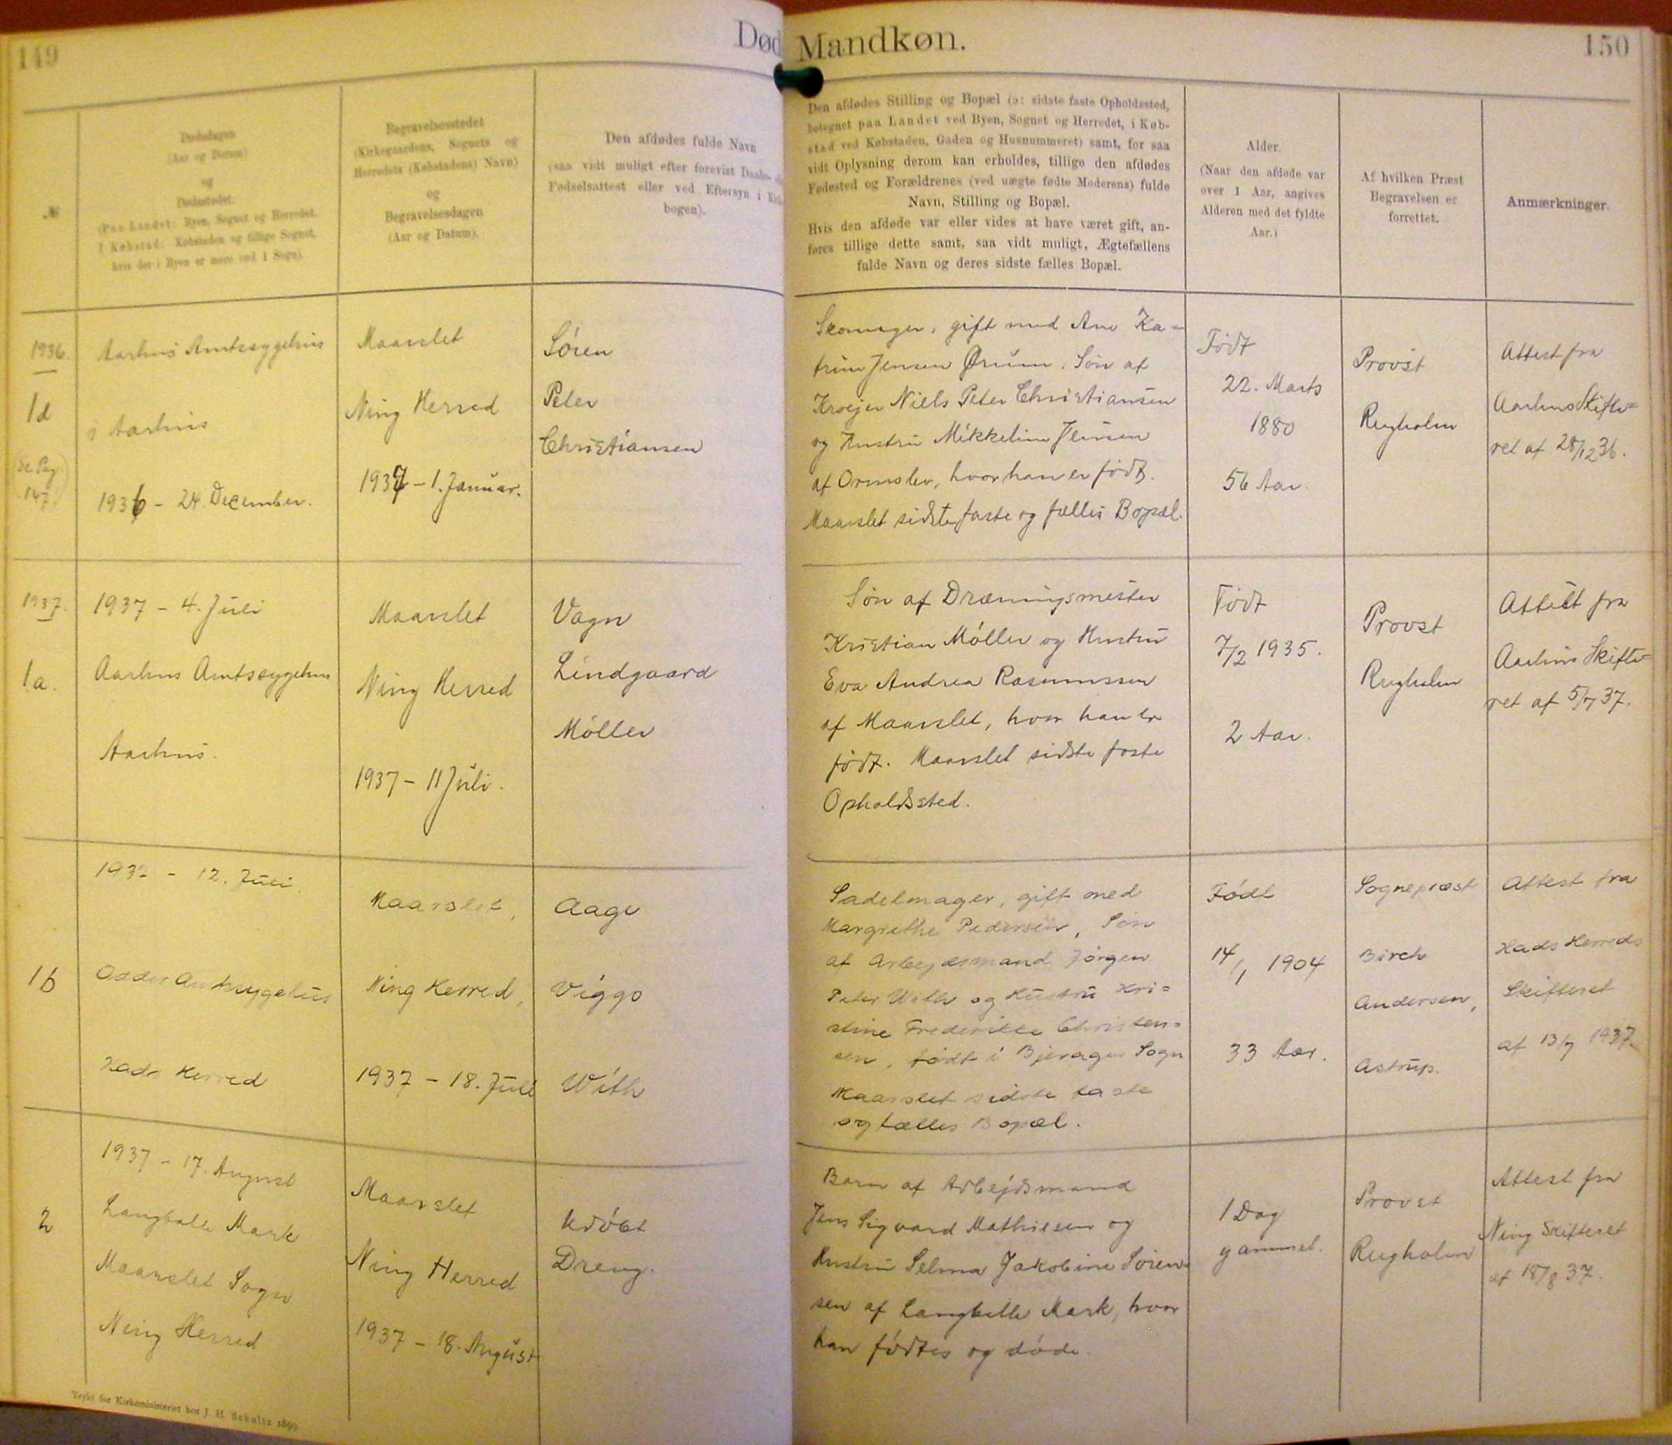 149
Død
Mandkøn.
150
№
Dødsdagen
(Aar og Datum)
og
Dødsstedet.
(Paa Landet: Byen, Sognet og Herredet.
I Købstad: Købstaden og tillige Sognet,
hvis der i Byen er mere end 1 Sogn).
Begravelsesstedet
(Kirkegaardens, Sognets og
Herredets (Købstadens) Navn)
og
Begravelsesdagen
(Aar og Datum).
Den afdødes fulde Navn
(saa vidt muligt efter forevist Daabs-
Fødselsattest eller ved Eftersyn i
bogen).
Den afdødes Stilling og Bopæl (ɔ: sidste faste Opholdssted,
betegnet paa Landet ved Byen, Sognet og Herredet, i Køb-
stad ved Købstaden, Gaden og Husnummeret) samt, for saa
vidt Oplysning derom kan erholdes, tillige den afdødes
Fødested og Forældrenes (ved uægte fødte Moderens) fulde
Navn, Stilling og Bopæl.
Hvis den afdøde var eller vides at have været gift, an-
føres tillige dette samt, saa vidt muligt, Ægtefællens
fulde Navn og deres sidste fælles Bopæl.
Alder.
(Naar den afdøde var
over 1 Aar, angives
Alderen med det fyldte
Aar.)
Af hvilken Præst
Begravelsen er
forrettet.
Anmærkninger.
1936.
1d
(Se Pag.
147)
Aarhus Amtssygehus
i Aarhus
1936 - 24. December.
Maarslet
Ning Herred
1937 - 1. Januar.
Søren
Peter
Christiansen
Skomager, gift med Ane Ka-
trine Jensen Ørum. Søn af
Kroejer Niels Peter Christiansen
og Hustru Mikkeline Jensen
af Ormslev, hvor han er født.
Maarslet sidste faste og fælles Bopæl.
Født
22. Marts
1880
56 Aar.
Provst
Rugholm
Attest fra
Aarhus Skifte-
ret af 28/12 36.
1937.
1a.
1937 - 4. Juli
Aarhus Amtssygehus
Aarhus.
Maarslet
Ning Herred
1937 - 11 Juli.
Vagn
Lindgaard
Møller
Søn af Dræningsmester
Kristian Møller og Hustru
Eva Andrea Rasmussen
af Maarslet, hvor han er
født. Maarslet sidste faste
Opholdssted.
Født
7/2 1935.
2 Aar.
Provst
Rugholm
Attest fra
Aarhus Skifte-
ret af 5/7 37.
1b
1937 - 12. Juli.
Odder Amtssygehus
Hads Herred
Maarslet,
Ning Herred,
1937 - 18. Juli
Aage
Viggo
With
Sadelmager, gift med
Margrethe Pedersen, Søn
af Arbejdsmand Jørgen
Peter With og Hustru Kri-
stine Frederikke Christen-
sen, født i Bjerager Sogn
Maarslet sidste faste
og fælles Bopæl.
Født
14/1 1904
33 Aar.
Sognepræst
Birch
Andersen,
Astrup.
Attest fra
Hads Herreds
Skifteret
af 13/7 1937.
2
1937 - 17. August
Langballe Mark
Maarslet Sogn
Ning Herred
Maarslet
Ning Herred
1937 - 18. August
Udøbt
Dreng.
Barn af Arbejdsmand
Jens Sigvard Mathiesen og
Hustru Selma Jakobine Søren-
sen af Langballe Mark, hvor
han fødtes og døde.
1 Dag
gammel.
Provst
Rugholm
Attest fra
Ning Skifteret
af 18/8 37.
Trykt for Kirkeministeriet hos J. H. Schultz